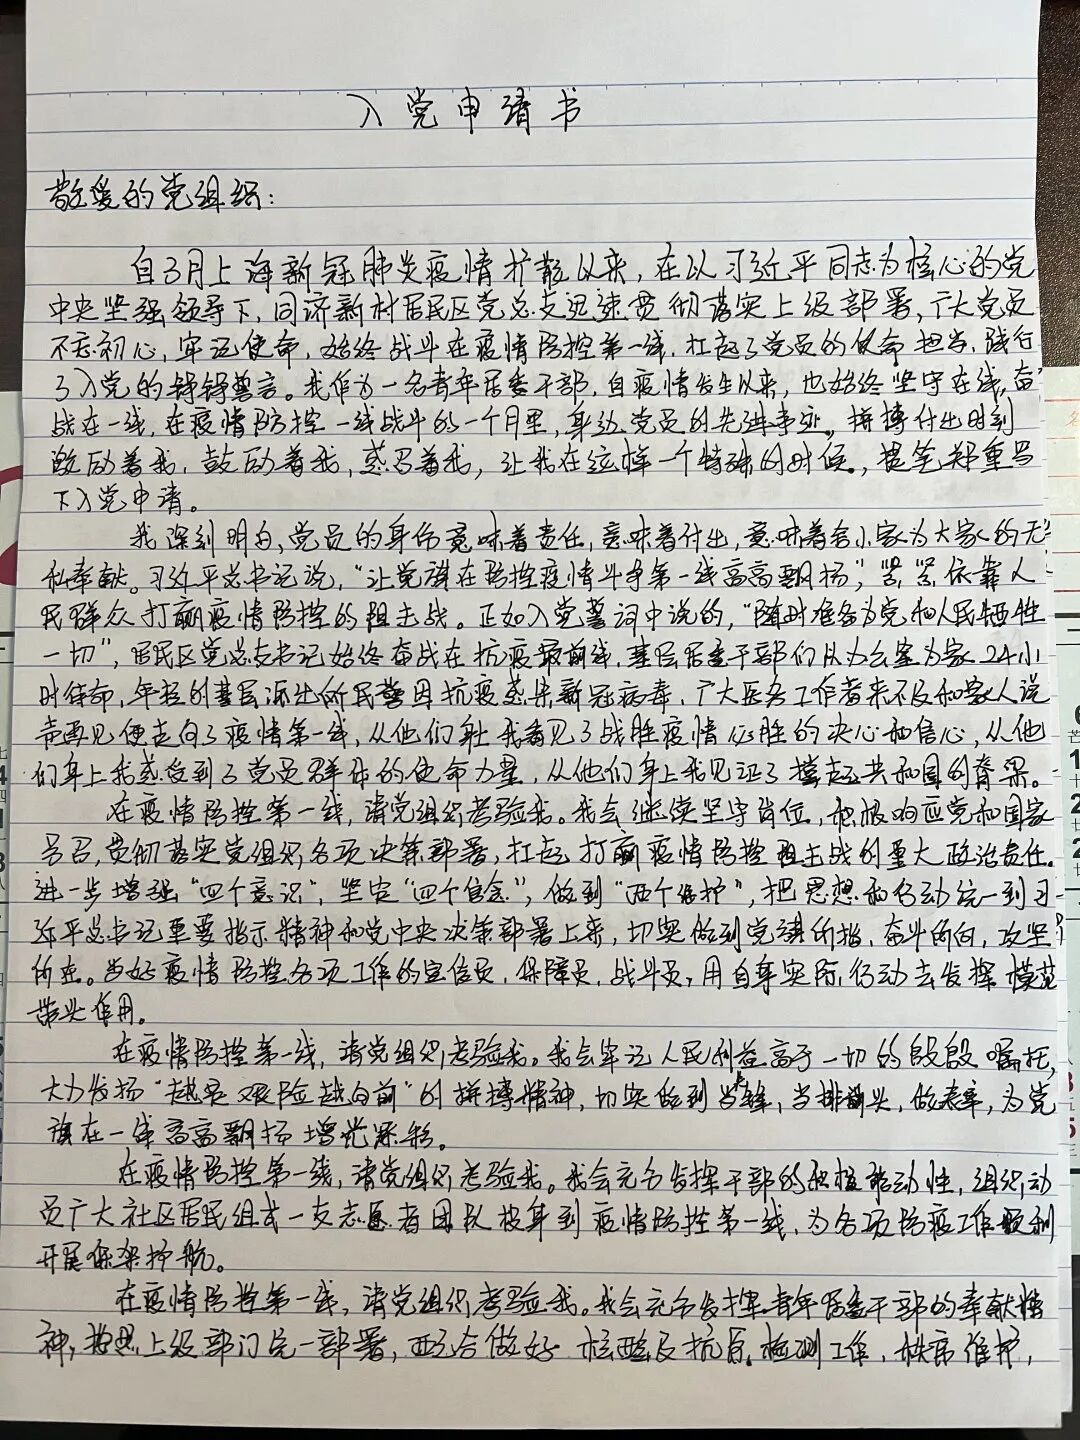 入党申请书
敬爱的党组织：
自3月上海新冠肺炎疫情扩散以来，在以习近平同志为核心的党
中央坚强领导下，同济新村居民区党总支迅速贯彻落实上级部署，广大党员
不忘初心，牢记使命，始终战斗在疫情防控第一线，扛起了党员的使命担当，践行
了入党的铮铮誓言。我作为一名青年居委干部，自疫情发生以来，也始终坚守在线，奋
战在一线，在疫情防控一线战斗的一个月里，身边党员的先进事迹，拼搏付出时刻
激励着我，鼓励着我，感召着我，让我在这样一个特殊的时候，提笔郑重写
下入党申请。
我深刻明白，党员的身份意味着责任，意味着付出，意味着舍小家为大家的无
私奉献。习近平总书记说，“让党旗在防控疫情斗争第一线高高飘扬”，紧紧依靠人
民群众打赢疫情防控的阻击战。正如入党誓词中说的，“随时准备为党和人民牺牲
一切”，居民区党总支书记始终奋战在抗疫最前线，基层居委干部们以办公室为家24小
时待命，年轻的基层派出所民警因抗疫感染新冠病毒，广大医务工作者来不及和家人说
声再见便走向了疫情第一线，从他们身上我看见了战胜疫情必胜的决心和信心，从他
们身上我感受到了党员群体的使命力量，从他们身上我见证了撑起共和国的脊梁。
在疫情防控第一线，请党组织考验我。我会继续坚守岗位，积极响应党和国家
号召，贯彻落实党组织各项决策部署，扛起打赢疫情防控阻击战的重大政治责任。
进一步增强“四个意识”，坚定“四个自信”，做到“两个维护”，把思想和行动统一到习
近平总书记重要指示精神和党中央决策部署上来，切实做到党旗所指，奋斗所向，攻坚
所在。当好疫情防控各项工作的宣传员，保障员，战斗员，用自身实际行动去发挥模范
带头作用。
在疫情防控第一线，请党组织考验我。我会牢记人民利益高于一切的殷殷嘱托，
大力发扬“越是艰险越向前”的拼搏精神，切实做到当先锋，当排头，做表率，为党
旗在一线高高飘扬增光添彩。
在疫情防控第一线，请党组织考验我。我会充分发挥干部的积极能动性，组织动
员广大社区居民组成一支志愿者团队投身到疫情防控第一线，为各项防疫工作顺利
开展保驾护航。
在疫情防控第一线，请党组织考验我。我会充分发挥青年居委干部的奉献精
神，按照上级部门统一部署，配合做好核酸及抗原检测工作，秩序维护，